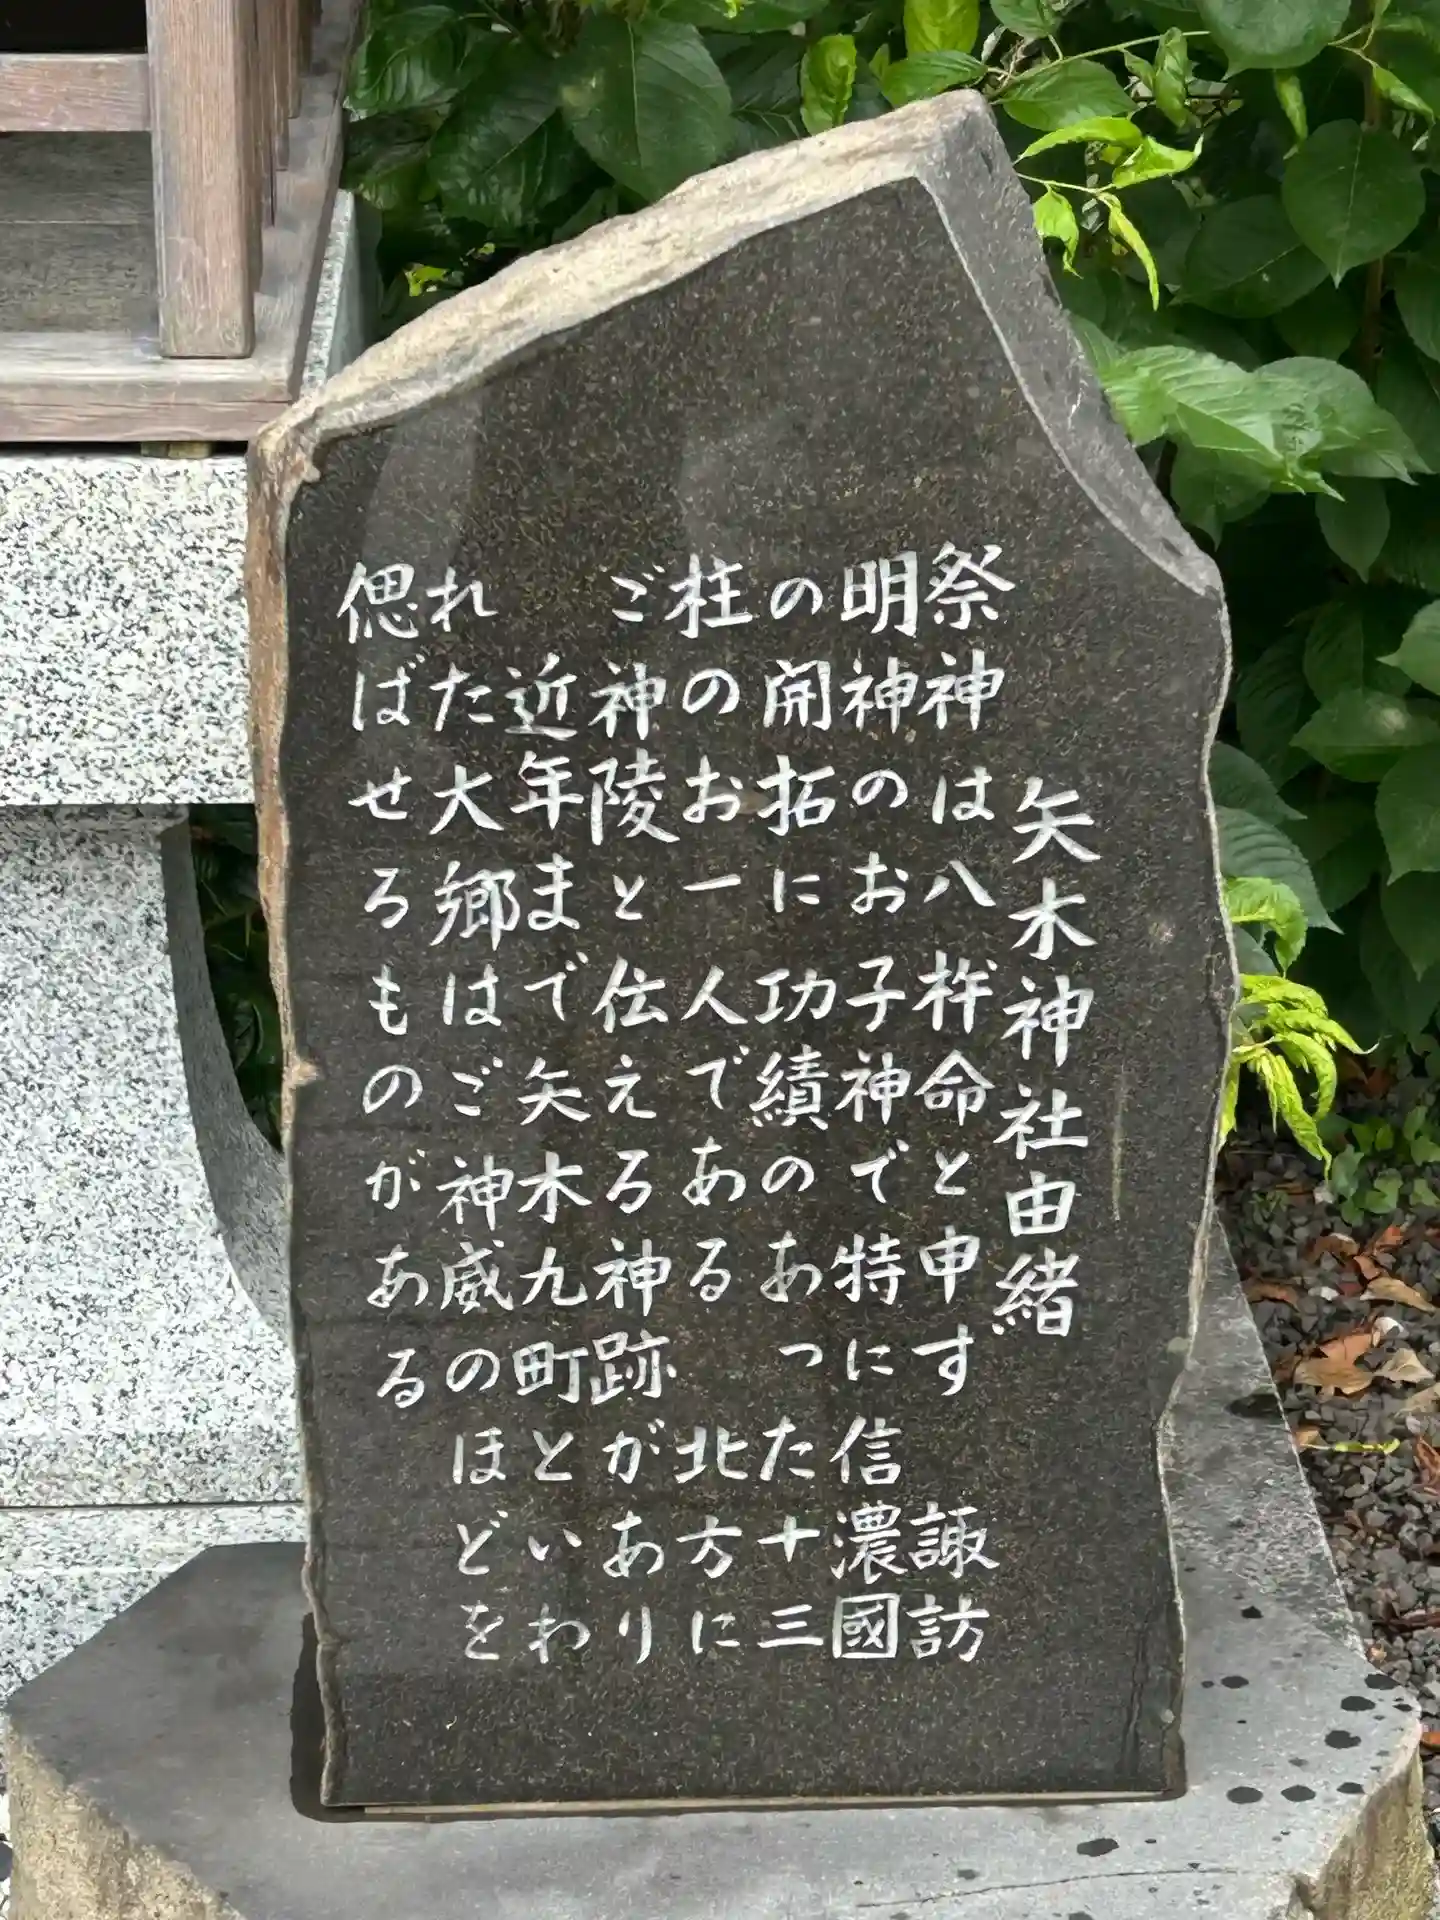 矢木神社由緒
祭神は八杵命と申す　諏訪
明神のお子神で特に信濃國
の開拓に功績のあった十三
柱のお一人である　北方に
ご神陵と伝える神跡があり
近年まで矢木九町といわ
れた大郷はご神威のほどを
偲ばせるものがある